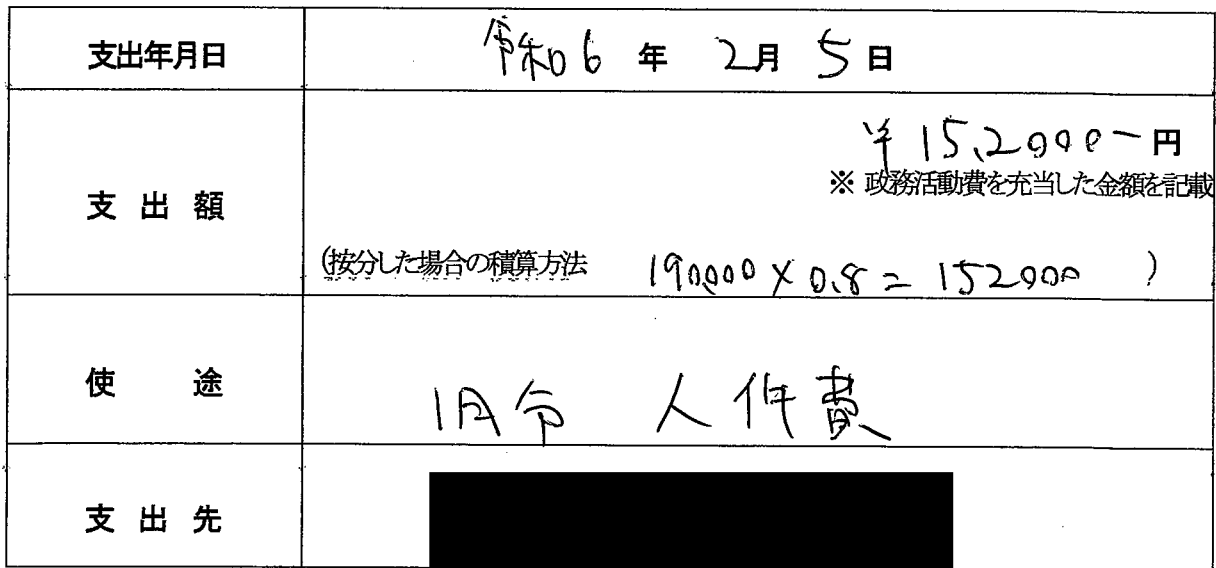 支出年月日 令和6年 2月 5日
¥152000-円
※ 政務活動費を充当した金額を記載
支出額
(按分した場合の積算方法 190000×0.8=152000 )
使途 1月分 人件費
支出先